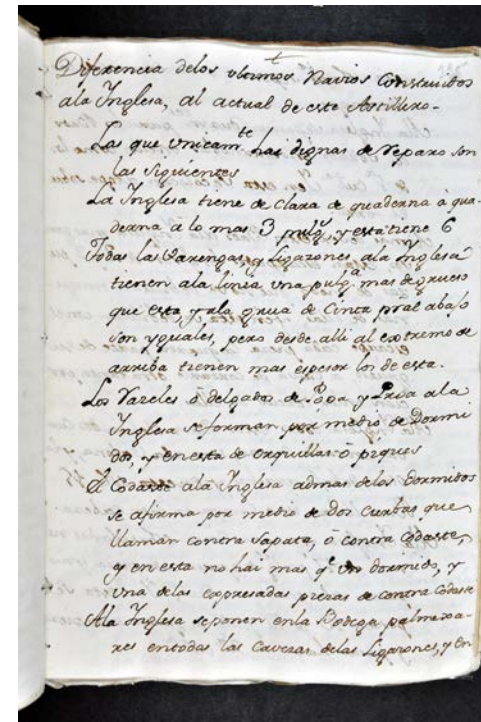 Diferencia delos ultimos Navios Construidos
ala Inglesa, al actual de este Astillero.
Las que unicam.te hai dignas de reparo son
las siguientes
La Inglesa tiene de clara de quaderna á qua
derna á lo mas 3 pulg.s y esta tiene 6
Todas las Varengas, y Ligazones ala Inglesa
tienen ala linea una pulg.a mas de grueso
que esta, y ala grua de Cinta pral abajo
son yguales, pero desde alli al extremo de
arriba tienen mas espesor los de esta.
Los Razeles ó delgados de Popa y Proa ala
Inglesa se forman por medio de Dormi
dos, y en esta de orquillas ó piques
El Codaste ala Inglesa admas delos dormidos
se afirma por medio de dos Curbas que
llaman contra sapata, ó contra Codaste,
y en esta no hai mas q.e un dormido, y
una delas expresadas piezas de contra Codaste
Ala Inglesa se ponen en la Bodega palmexa-
res en todas las Cavezas delas Ligazones, y en